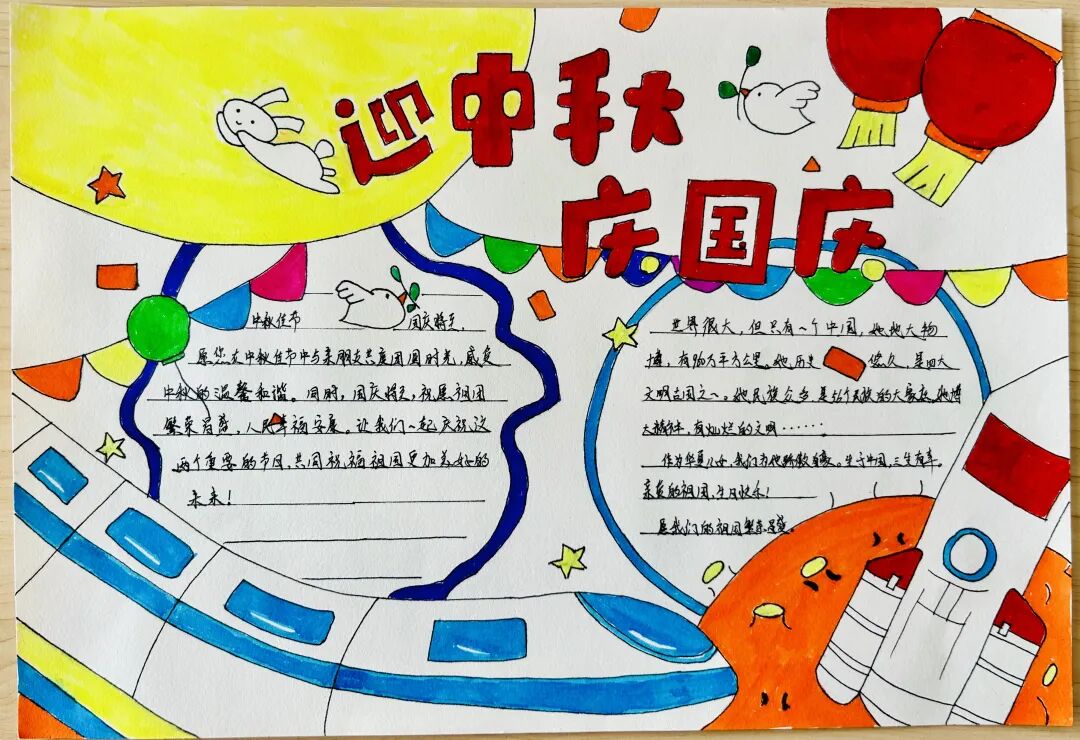 迎中秋
庆国庆
中秋佳节 国庆将至,
愿您在中秋佳节中与亲朋友共度团圆时光,感受
中秋的温馨和谐。同时,国庆将至,祝愿祖国
繁荣昌盛,人民幸福安康。让我们一起庆祝这
两个重要的节日,共同祝福祖国更加美好的
未来!
世界很大,但只有一个中国,她地大物
博,有960万平方公里。她历史悠久,是四大
文明古国之一。她民族众多,是56个民族的大家庭,她博
大精深,有灿烂的文明……
作为华夏儿女,我们为他骄傲自豪。生于中国,三生有幸。
亲爱的祖国,生日快乐!
愿我们的祖国繁荣昌盛。